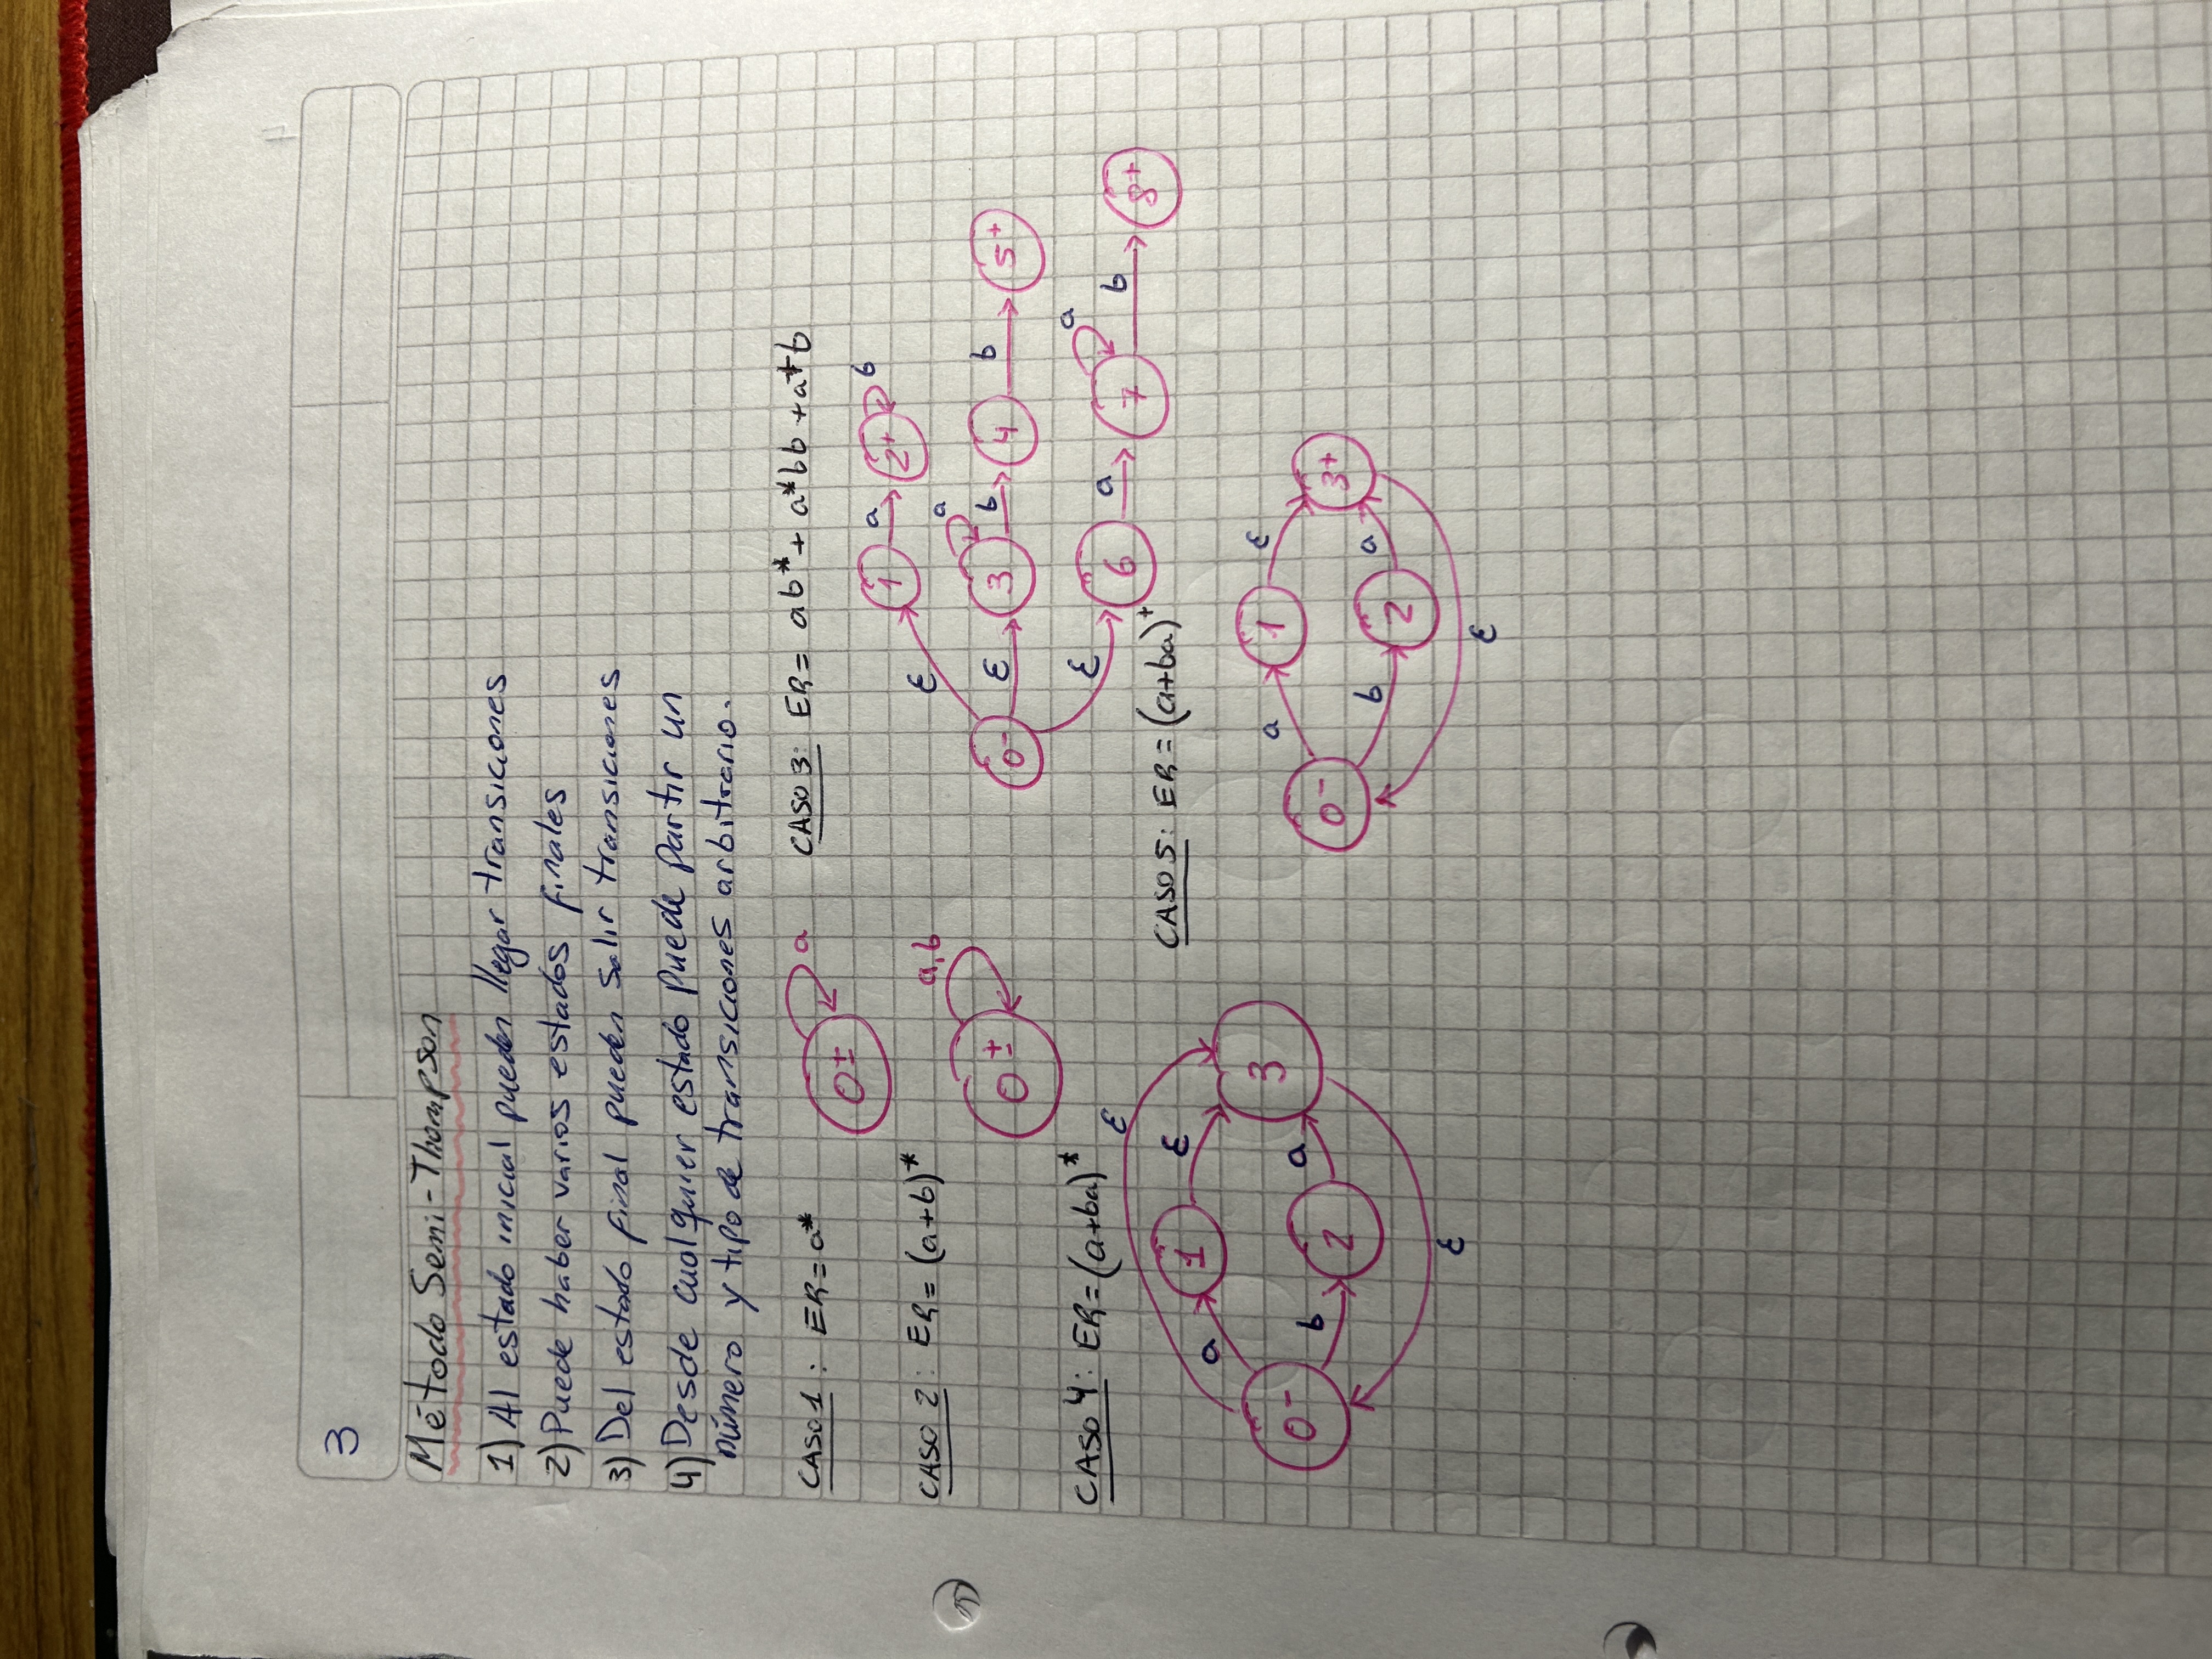 3
Método Semi-Thompson
1) Al estado inicial pueden llegar transiciones
2) Puede haber varios estados finales
3) Del estado final pueden salir transiciones
4) Desde cualquier estado puede partir un
número y tipo de transiciones arbitrario.
CASO 1: ER = a*
0± a
CASO 2: ER = (a+b)*
0± a,b
CASO 3: ER = ab* + a*bb + a+b
ε 1 a 2+ b
0- ε 3 a b 4 b 5+
ε 6 a 7 a b 8+
CASO 4: ER = (a+ba)*
ε
a 1 ε
0- 3
b 2 a
ε
CASO 5: ER = (a+ba)+
a 1 ε
0- 3+
b 2 a
ε